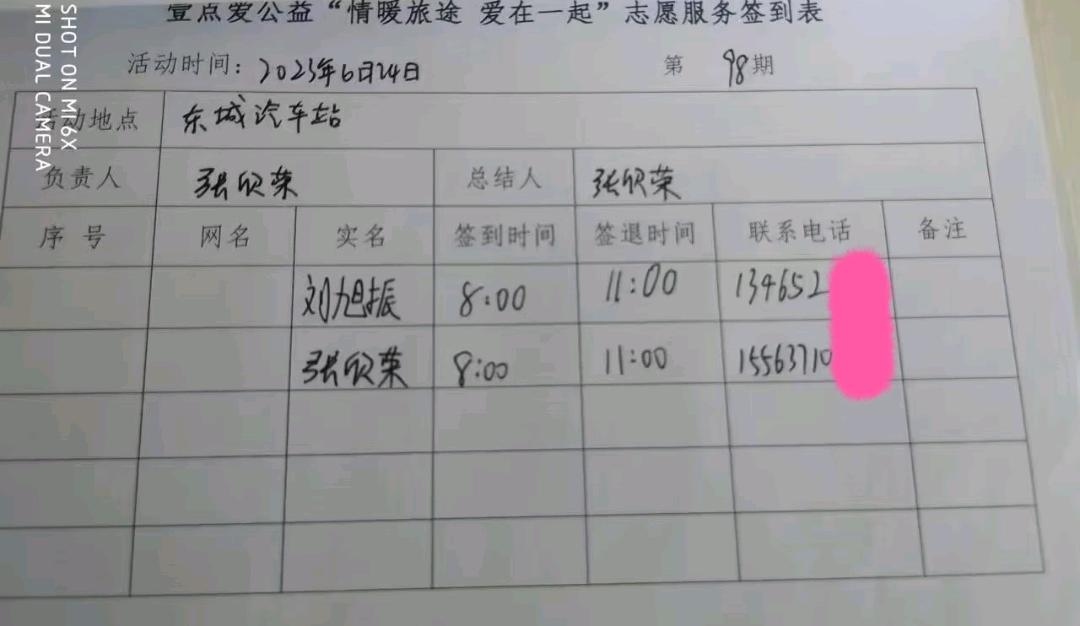 壹点爱公益“情暖旅途 爱在一起”志愿服务签到表
活动时间：2023年6月24日 第 98期
活动地点 东城汽车站
负责人 张欣荣 总结人 张欣荣
序号 网名 实名 签到时间 签退时间 联系电话 备注
刘旭振 8:00 11:00 134652
张欣荣 8:00 11:00 15563710
SHOT ON MI 6X
MI DUAL CAMERA